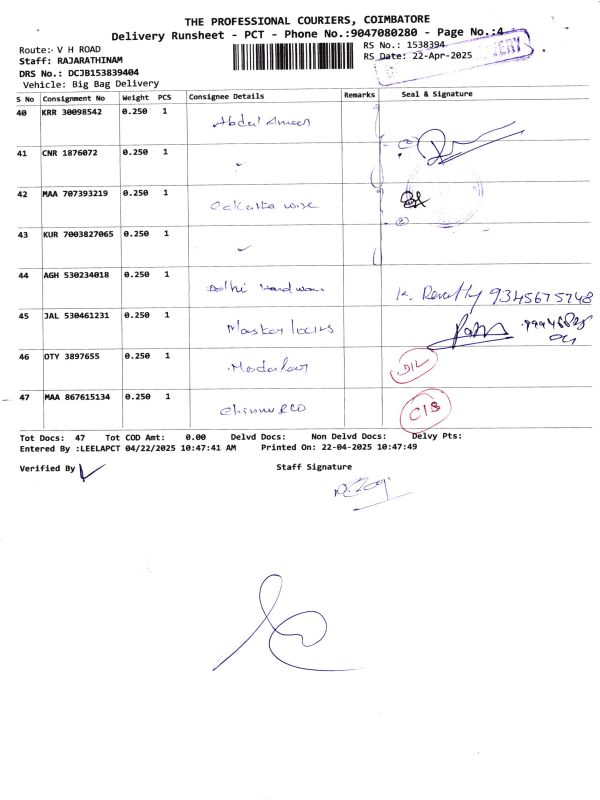 THE PROFESSIONAL COURIERS, COIMBATORE
Delivery Runsheet - PCT - Phone No.:9047080280 - Page No.:4
Route:- V H ROAD
RS No.: 1538394
Staff: RAJARATHINAM
RS Date: 22-Apr-2025
DRS No.: DCJB153839404
Vehicle: Big Bag Delivery
S No Consignment No Weight PCS Consignee Details Remarks Seal & Signature
40 KRR 30098542 0.250 1 Abdul Ameer
41 CNR 1876072 0.250 1
42 MAA 707393219 0.250 1 wise
43 KUR 7003827065 0.250 1
44 AGH 530234018 0.250 1 Delhi Hardware K. 9345675748
45 JAL 530461231 0.250 1 Master locks
46 OTY 3897655 0.250 1 D/L
47 MAA 867615134 0.250 1 C/S
Tot Docs: 47 Tot COD Amt: 0.00 Delvd Docs: Non Delvd Docs: Delvy Pts:
Entered By :LEELAPCT 04/22/2025 10:47:41 AM Printed On: 22-04-2025 10:47:49
Verified By Staff Signature